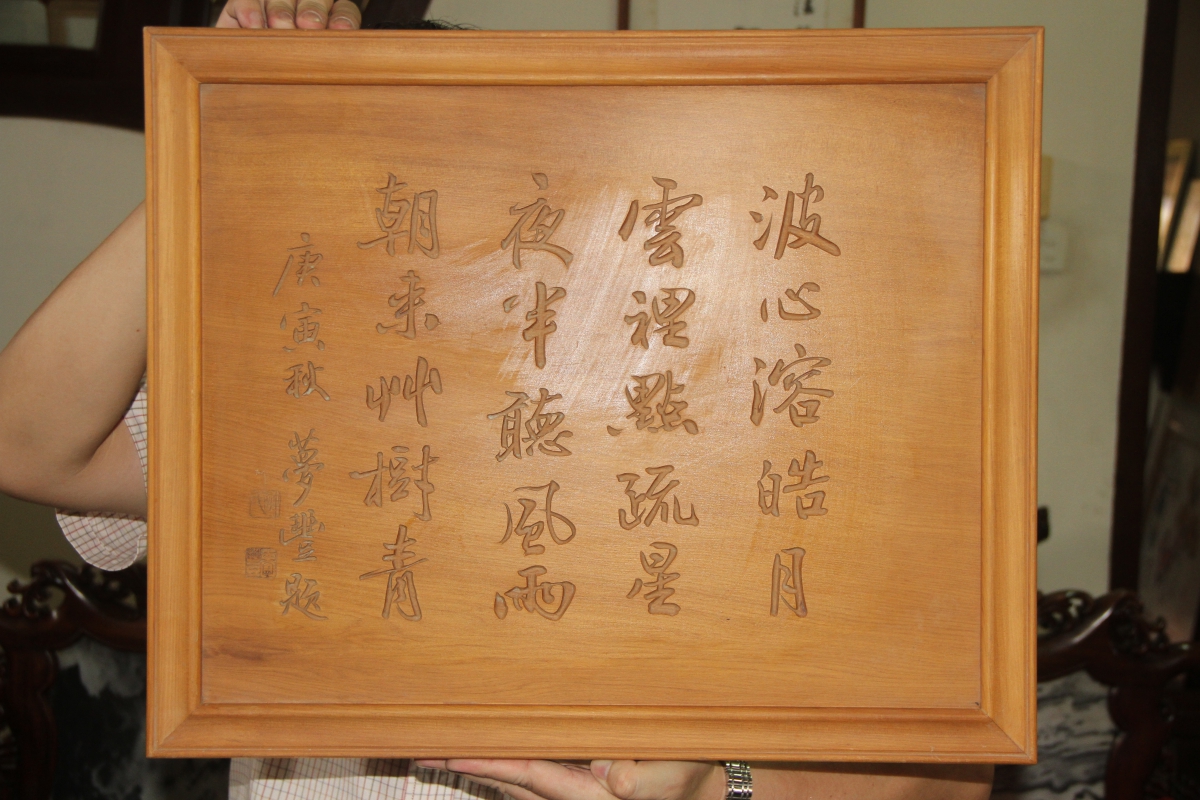 波心溶皓月
雲裡點疏星
夜半聽風雨
朝來艸樹青
庚寅秋 夢豐題